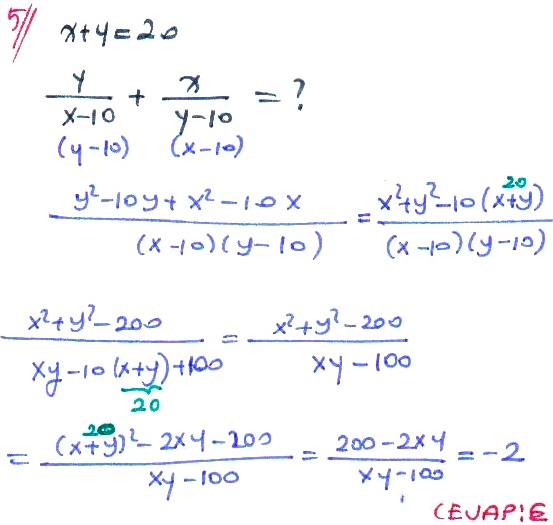 5//
x+y=20
y/(x-10) + x/(y-10) = ?
(y-10) (x-10)
(y²-10y+x²-10x)/((x-10)(y-10)) = (x²+y²-10(x+y))/((x-10)(y-10))
20
(x²+y²-200)/(xy-10(x+y)+100) = (x²+y²-200)/(xy-100)
20
20
= ((x+y)²-2xy-200)/(xy-100) = (200-2xy)/(xy-100) = -2
CEVAP!E